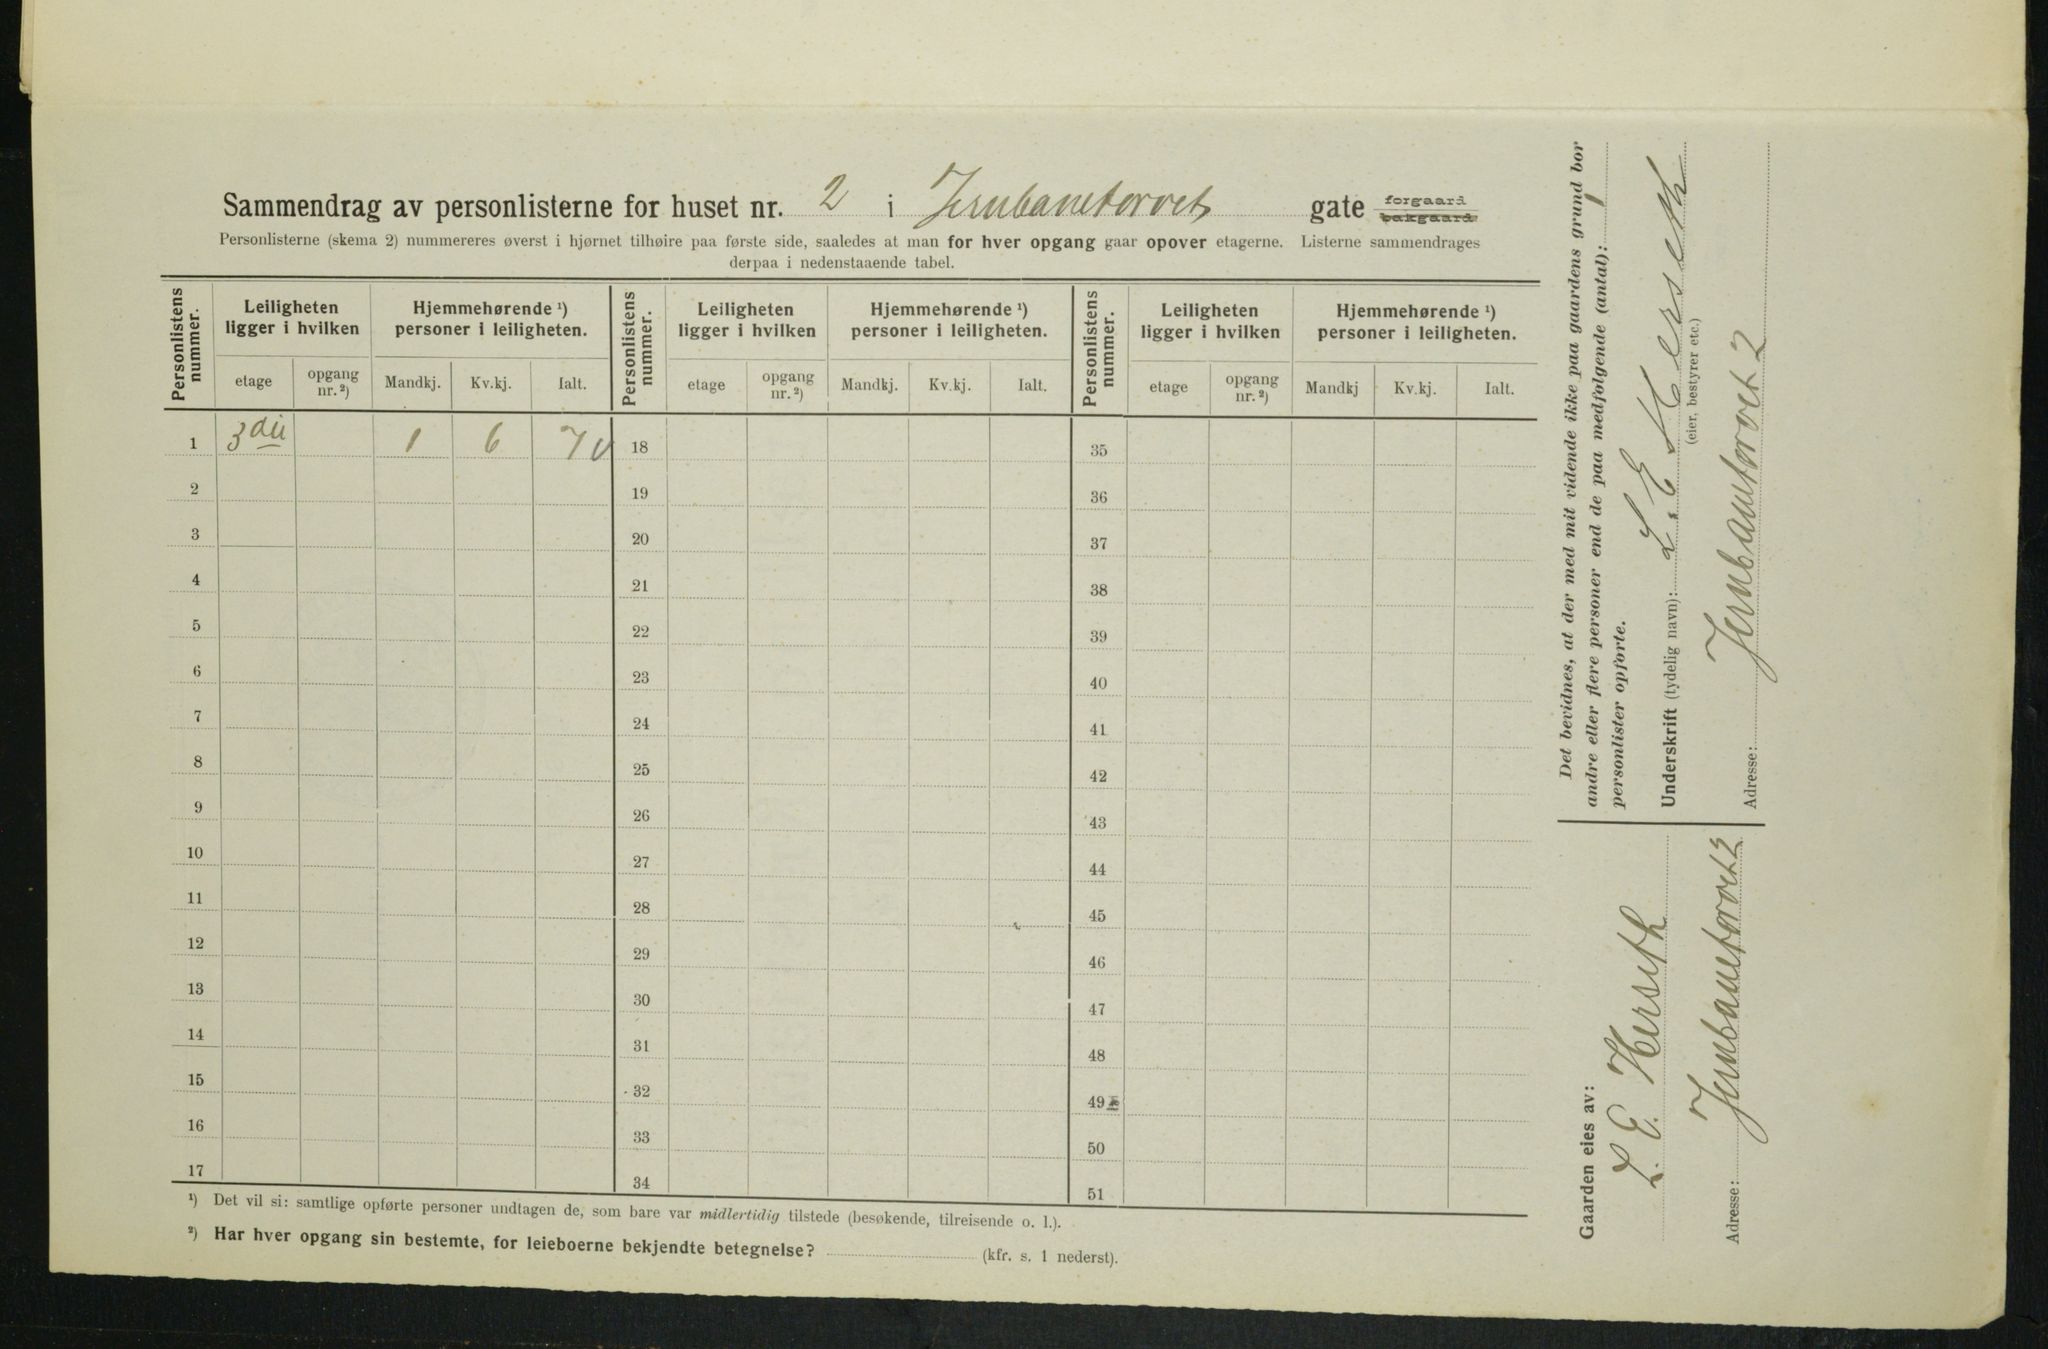 Sammendrag av personlisterne for huset nr. 2 i Jernbanetorvet gate forgaard bakgaard
Personlisterne (skema 2) nummereres øverst i hjørnet tilhøire paa første side, saaledes at man for hver opgang gaar opover etagerne. Listerne sammendrages
derpaa i nedenstaaende tabel.
Personlistens nummer. Leiligheten ligger i hvilken Hjemmehørende ¹) personer i leiligheten. Personlistens nummer. Leiligheten ligger i hvilken Hjemmehørende ¹) personer i leiligheten. Personlistens nummer. Leiligheten ligger i hvilken Hjemmehørende ¹) personer i leiligheten.
etage opgang nr. ²) Mandkj. Kv.kj. Ialt. etage opgang nr. ²) Mandkj. Kv.kj. Ialt. etage opgang nr. ²) Mandkj Kv.kj. Ialt.
1 3die 1 6 7 18 35
2 19 36
3 20 37
4 21 38
5 22 39
6 23 40
7 24 41
8 25 42
9 26 43
10 27 44
11 28 45
12 29 46
13 30 47
14 31 48
15 32 49
16 33 50
17 34 51
¹) Det vil si: samtlige opførte personer undtagen de, som bare var midlertidig tilstede (besøkende, tilreisende o. l.).
²) Har hver opgang sin bestemte, for leieboerne bekjendte betegnelse? (kfr. s. 1 nederst).
Det bevidnes, at der med mit vidende ikke paa gaardens grund bor
andre eller flere personer end de paa medfølgende (antal): 1
personlister opførte.
Underskrift (tydelig navn): L. E. Herseth
(eier, bestyrer etc.)
Adresse: Jernbanetorvet 2
Gaarden eies av:
L. E. Herseth
Adresse: Jernbanetorvet 2